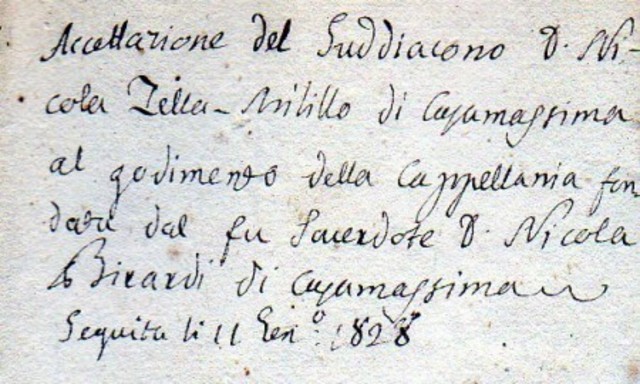 Accettazione del Suddiacono D. Ni-
cola Zella-Milillo di Casamassima
al godimento della Cappellania fon
data dal fu Sacerdote D. Nicola
Birardi di Casamassima
Seguita li 11 Gen.o 1828